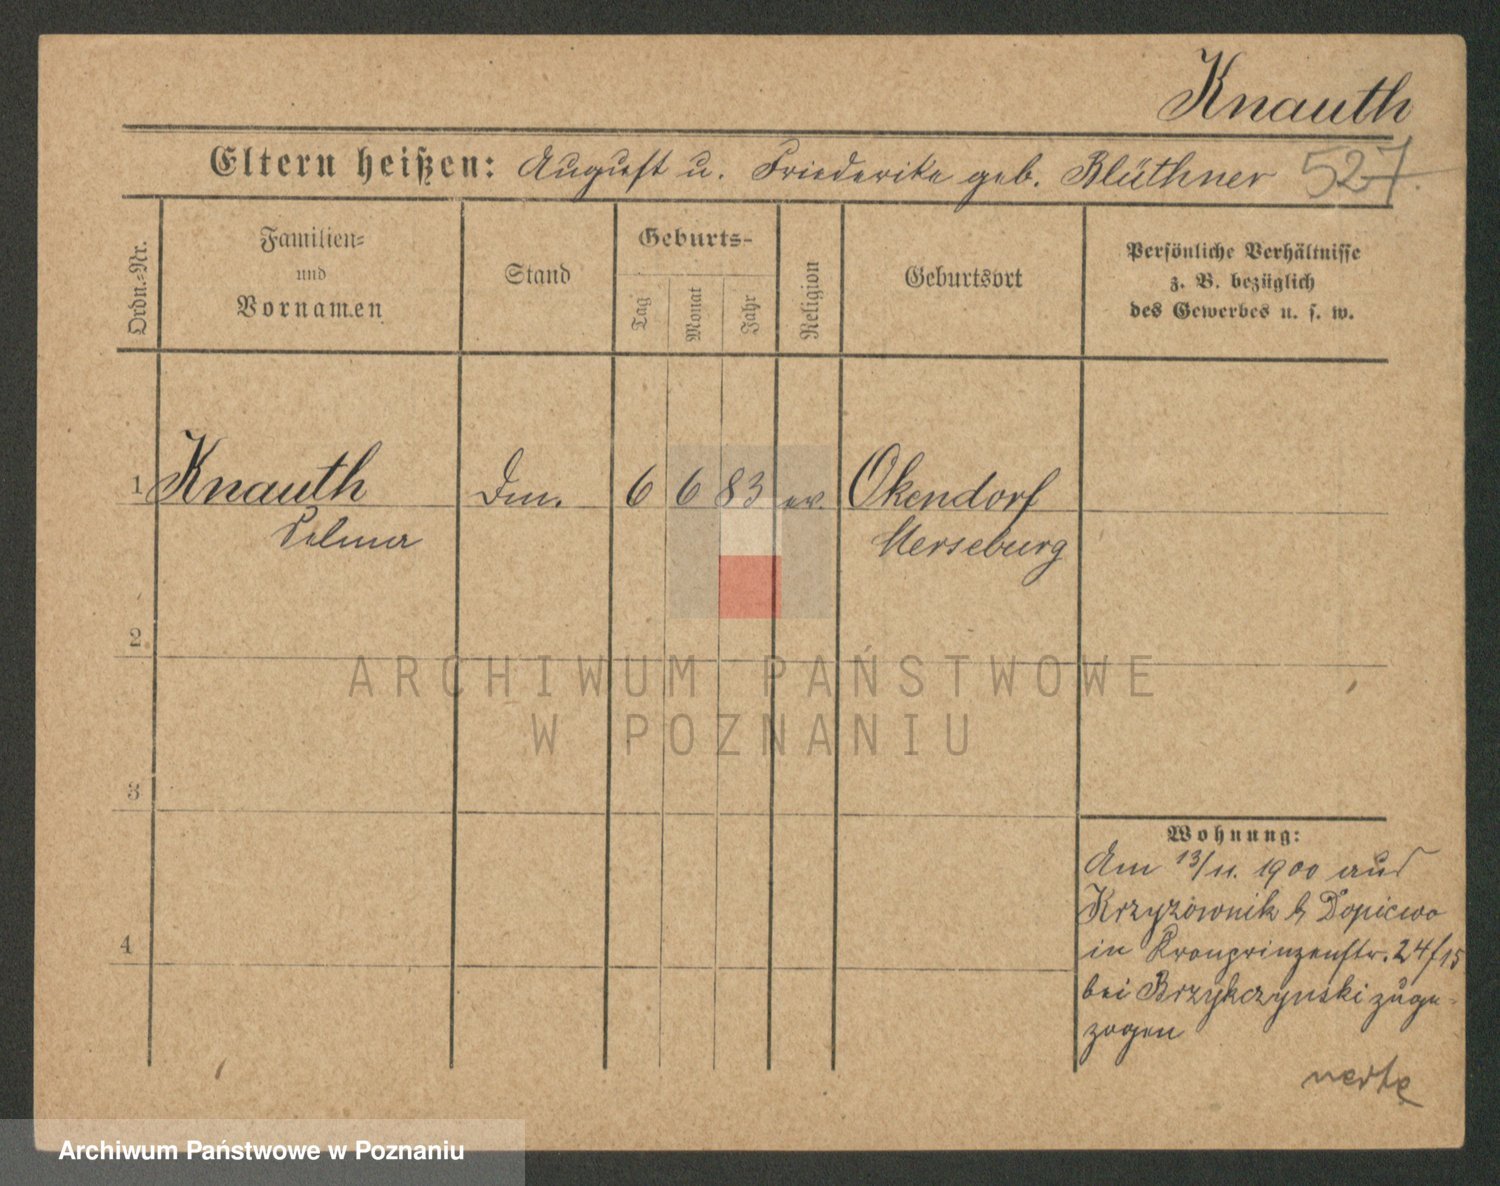 Knauth
Eltern heißen: August u. Friederike geb. Blüthner 527.
Ordn.=Nr.
Familien=
und
Vornamen
Stand
Geburts-
Tag
Monat
Jahr
Religion
Geburtsort
Persönliche Verhältnisse
z. B. bezüglich
des Gewerbes u. s. w.
1 Knauth 6 6 83 ev. Okendorf
Selma Merseburg
2
3
4
Wohnung:
Am 13/11. 1900 aus
Krzyżownik b Dopiewo
in Kronprinzenstr. 24/15
bei Brzykczynski zuge-
zogen
ARCHIWUM PAŃSTWOWE
W POZNANIU
Archiwum Państwowe w Poznaniu